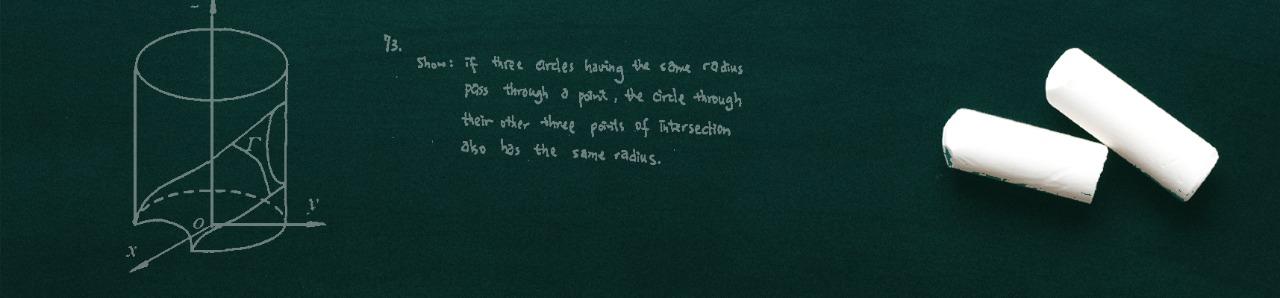 73.
Show: if three circles having the same radius
pass through a point, the circle through
their other three points of intersection
also has the same radius.
Γ
O
y
x